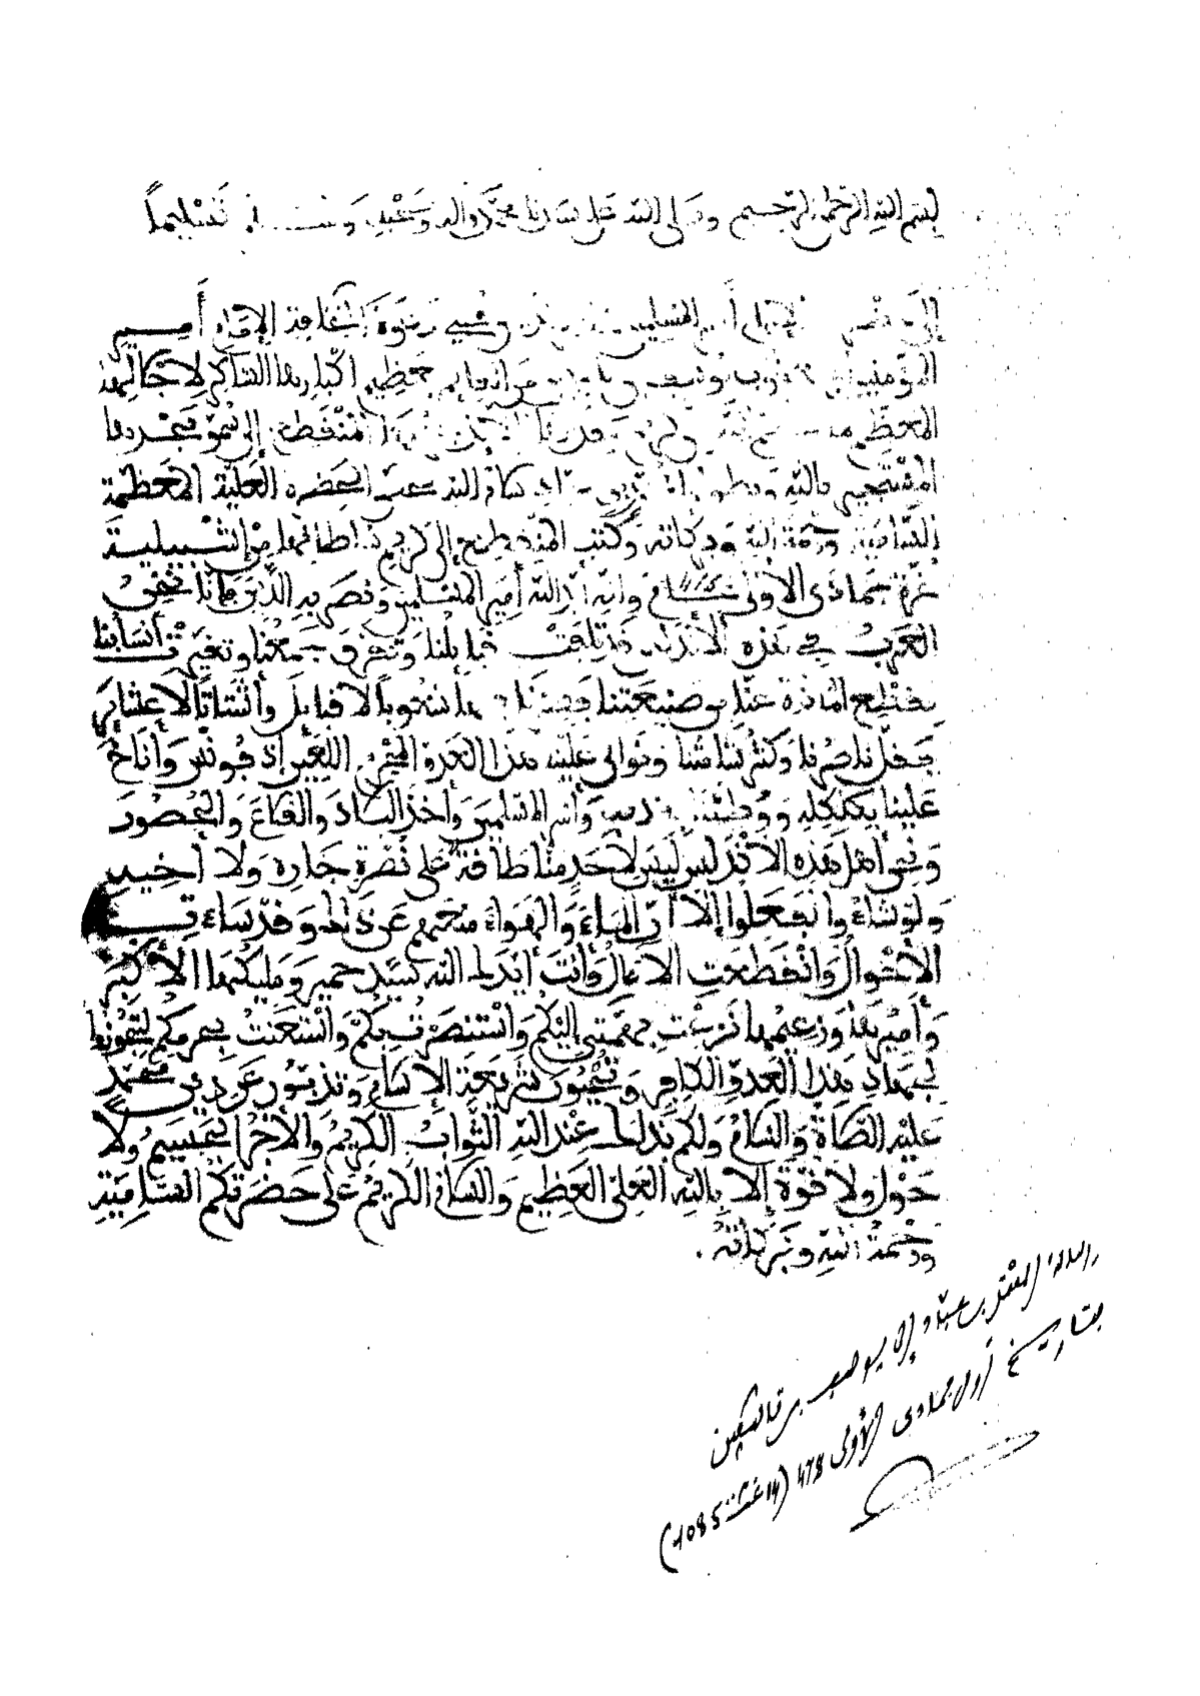 بسم الله الرحمن الرحيم وصلى الله على سيدنا محمد وآله وصحبه وسلم تسليماً
إلى حضرة الإمام أمير المسلمين الإمام أمير
المؤمنين أبي يعقوب يوسف بن تاشفين الشاكر لإجلالها
المعظم المنقطع إلى سمو مجدها
المستجير بالله وبطولها سلام الله على الحضرة العلية المعظمة
السامية ورحمة الله وبركاته وكتب المنقطع إلى كريم سلطانها من إشبيلية
غرة جمادى الأولى وإنه أيد الله أمير المسلمين ونصر به الدين فإنا نحن
العرب في هذه الأندلس قد تلفت قبائلنا وتفرق جمعنا وتغيرت أنسابنا
بقطع المادة عنا من صنيعتنا فصرنا فيها شعوباً لا قبايل وأشتاتاً لا عشاير
فقل ناصرنا وكثر شامتنا وتوالى علينا هذا العدو المجرم اللعين إذفونش وأناخ
علينا بكلكله ووطئنا وأسر المسلمين وأخذ البلاد والقلاع والحصون
ونحن أهل هذه الأندلس ليس لأحد منا طاقة على نصرة جاره ولا أخيه
ولو شاءوا لفعلوا إلا أن الماء والهواء منعهم عن ذلك وقد ساءت
الأحوال وانقطعت الآمال وأنت أيدك الله سيد حمير ومليكها الأكبر
وأميرها وزعيمها نزعت بهمتي إليكم واستنصرت بكم واستعنت بحرمكم لتجوزوا
لجهاد هذا العدو الكافر وتحيون شريعة الإسلام وتذبون عن دين محمد
عليه الصلاة والسلام ولكم بذلك عند الله الثواب الكريم والأجر الجسيم ولا
حول ولا قوة إلا بالله العلي العظيم والسلام الكريم على حضرتكم السامية
ورحمة الله وبركاته .
رسالة المعتمد بن عباد إلى يوسف بن تاشفين
بتاريخ أول جمادى الأولى 478 (14 غشت 1085)